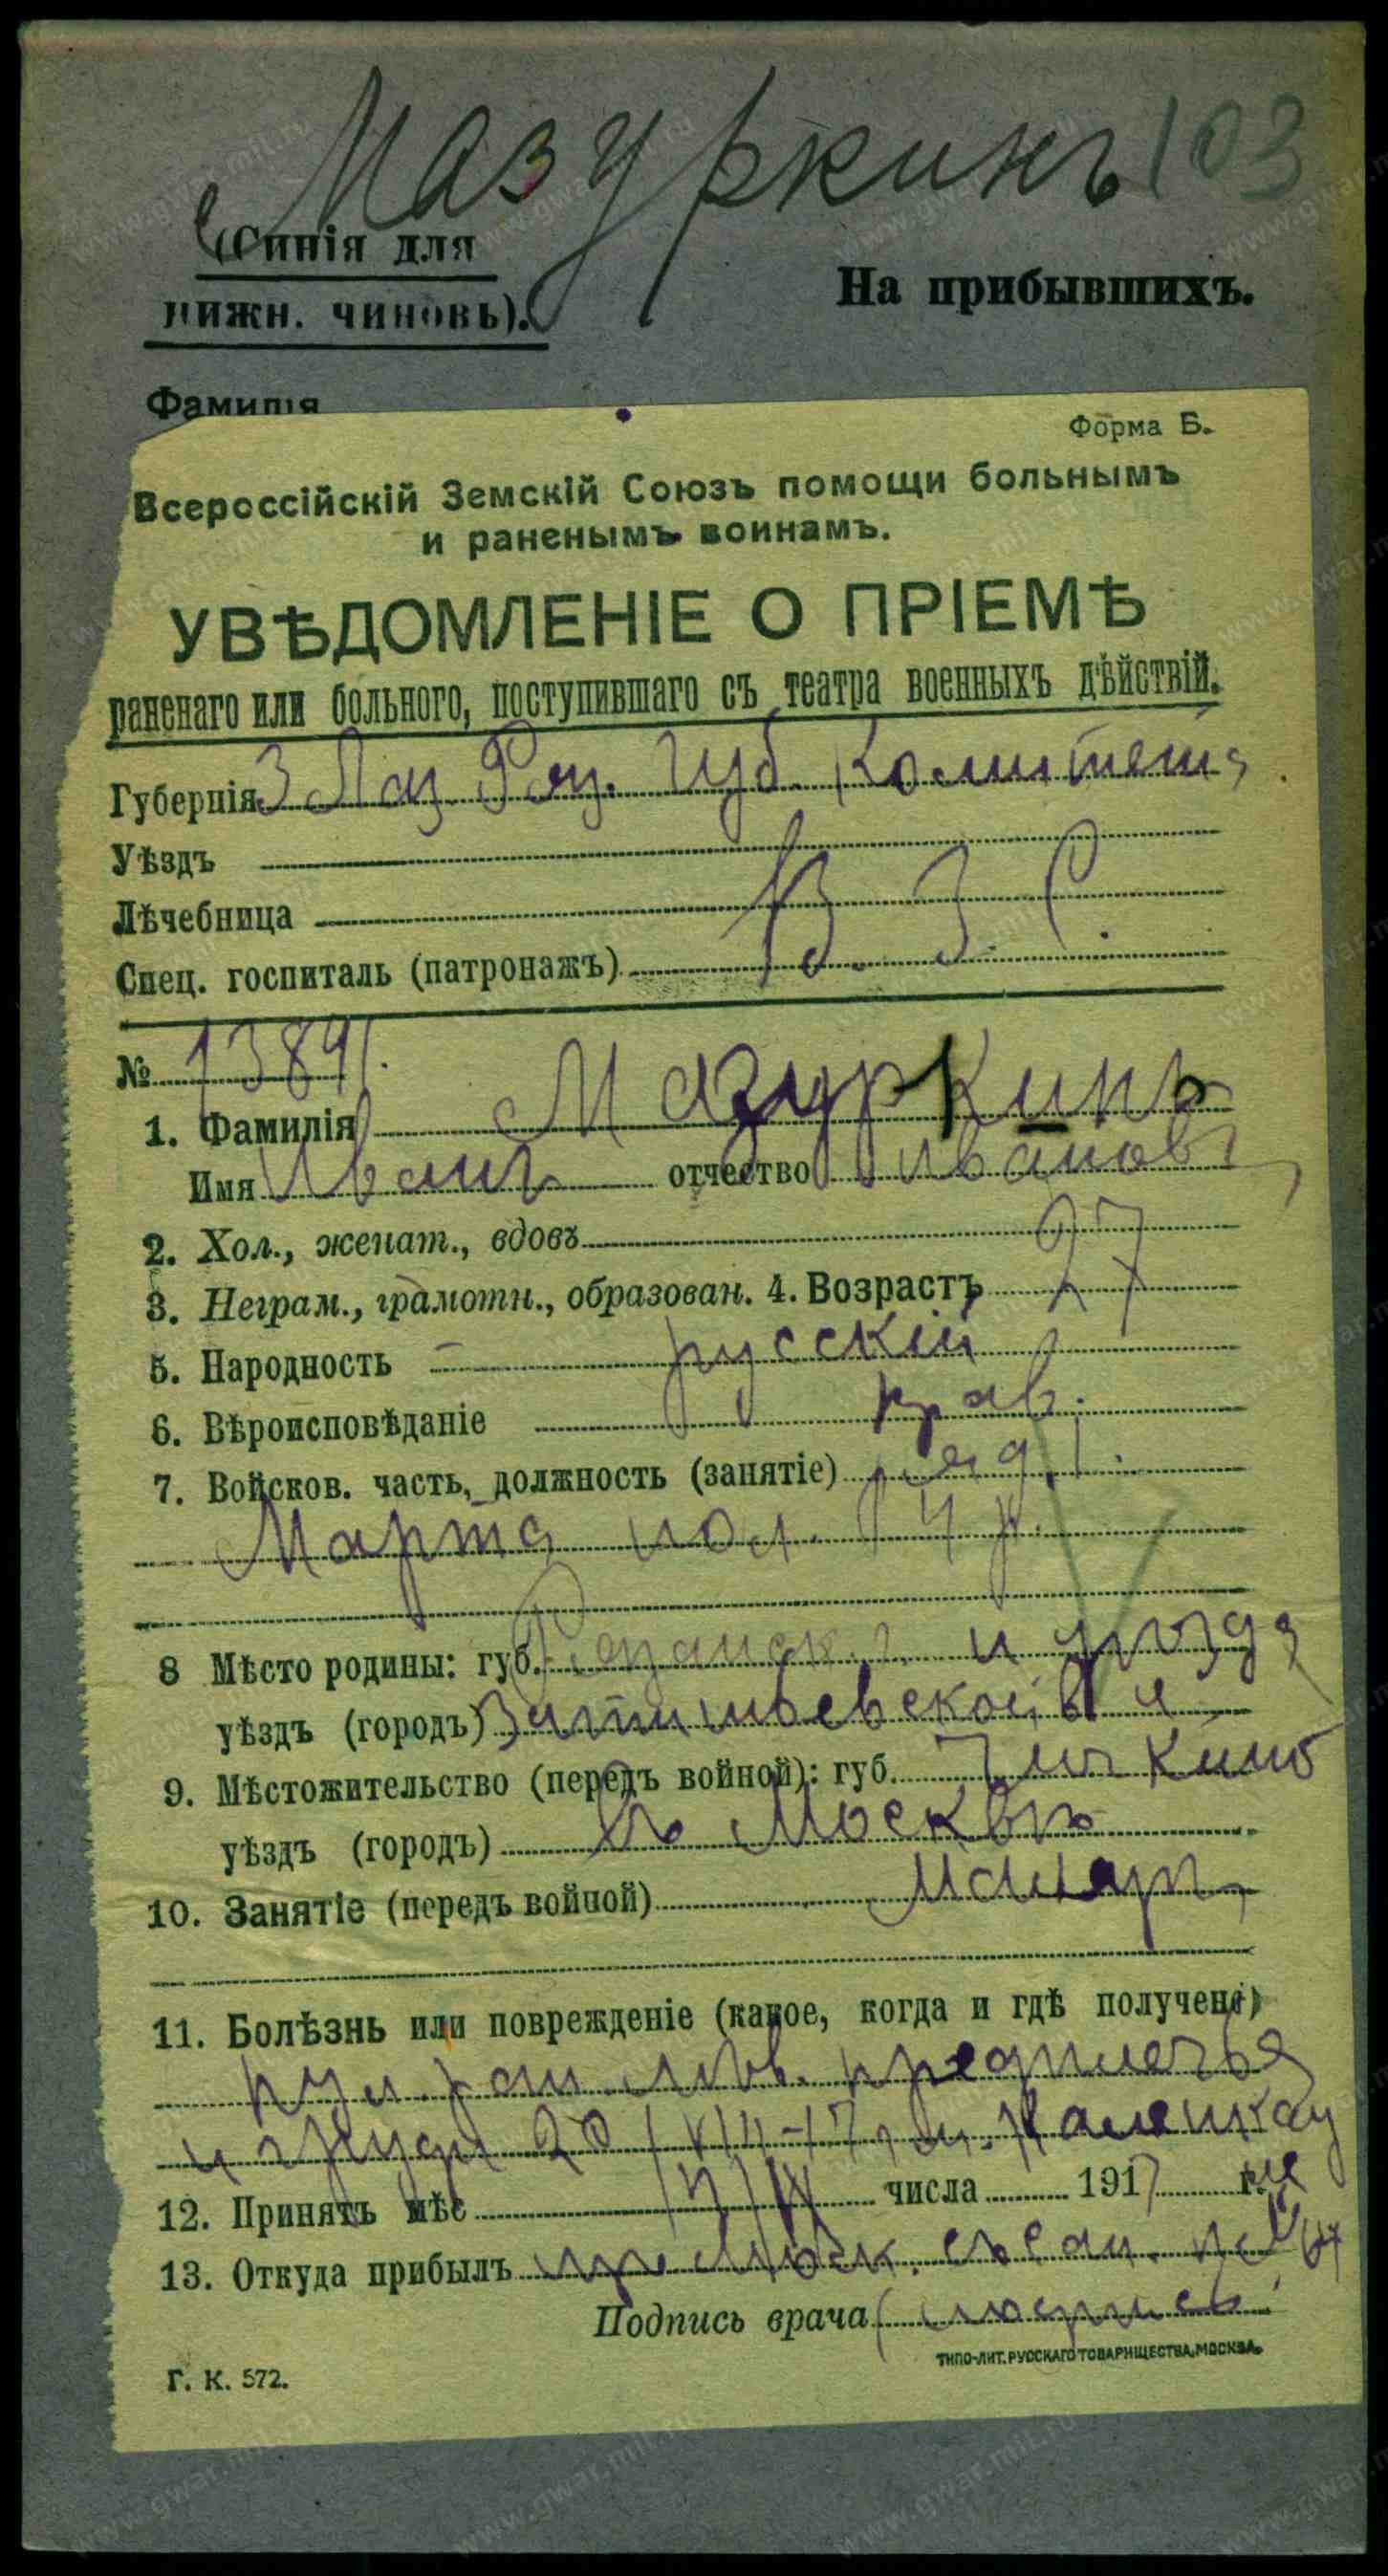 Мазуркинъ 103
(Синія для
нижн. чиновъ).
На прибывшихъ.
Фамилія
Форма Б.
Всероссійскій Земскій Союзъ помощи больнымъ
и раненымъ воинамъ.
УВѢДОМЛЕНІЕ О ПРІЕМѢ
раненаго или больного, поступившаго съ театра военныхъ дѣйствій.
Губернія 3 Лаз. Ряз. Губ. Комитета
Уѣздъ
Лѣчебница
Спец. госпиталь (патронажъ) В. З. С.
№ 13891.
1. Фамилія Мазуркинъ
Имя Иванъ отчество Иванов.
2. Хол., женат., вдовъ
3. Неграм., грамотн., образован. 4. Возрастъ 27
5. Народность русскій
6. Вѣроисповѣданіе прав.
7. Войсков. часть, должность (занятіе) ряд.
пол. 14 р.
8 Мѣсто родины: губ. Рязанск. г. и уѣзда
уѣздъ (городъ)
9. Мѣстожительство (передъ войной): губ.
уѣздъ (городъ) въ Москвѣ
10. Занятіе (передъ войной) маляръ
11. Болѣзнь или поврежденіе (какое, когда и гдѣ получено)
пул. ран. лѣв. предплечья
и груди 20/VIII-17 г.
12. Принятъ мѣс числа 1917 г.
13. Откуда прибылъ
Подпись врача
ТИПО-ЛИТ. РУССКАГО ТОВАРИЩЕСТВА, МОСКВА.
Г. К. 572.